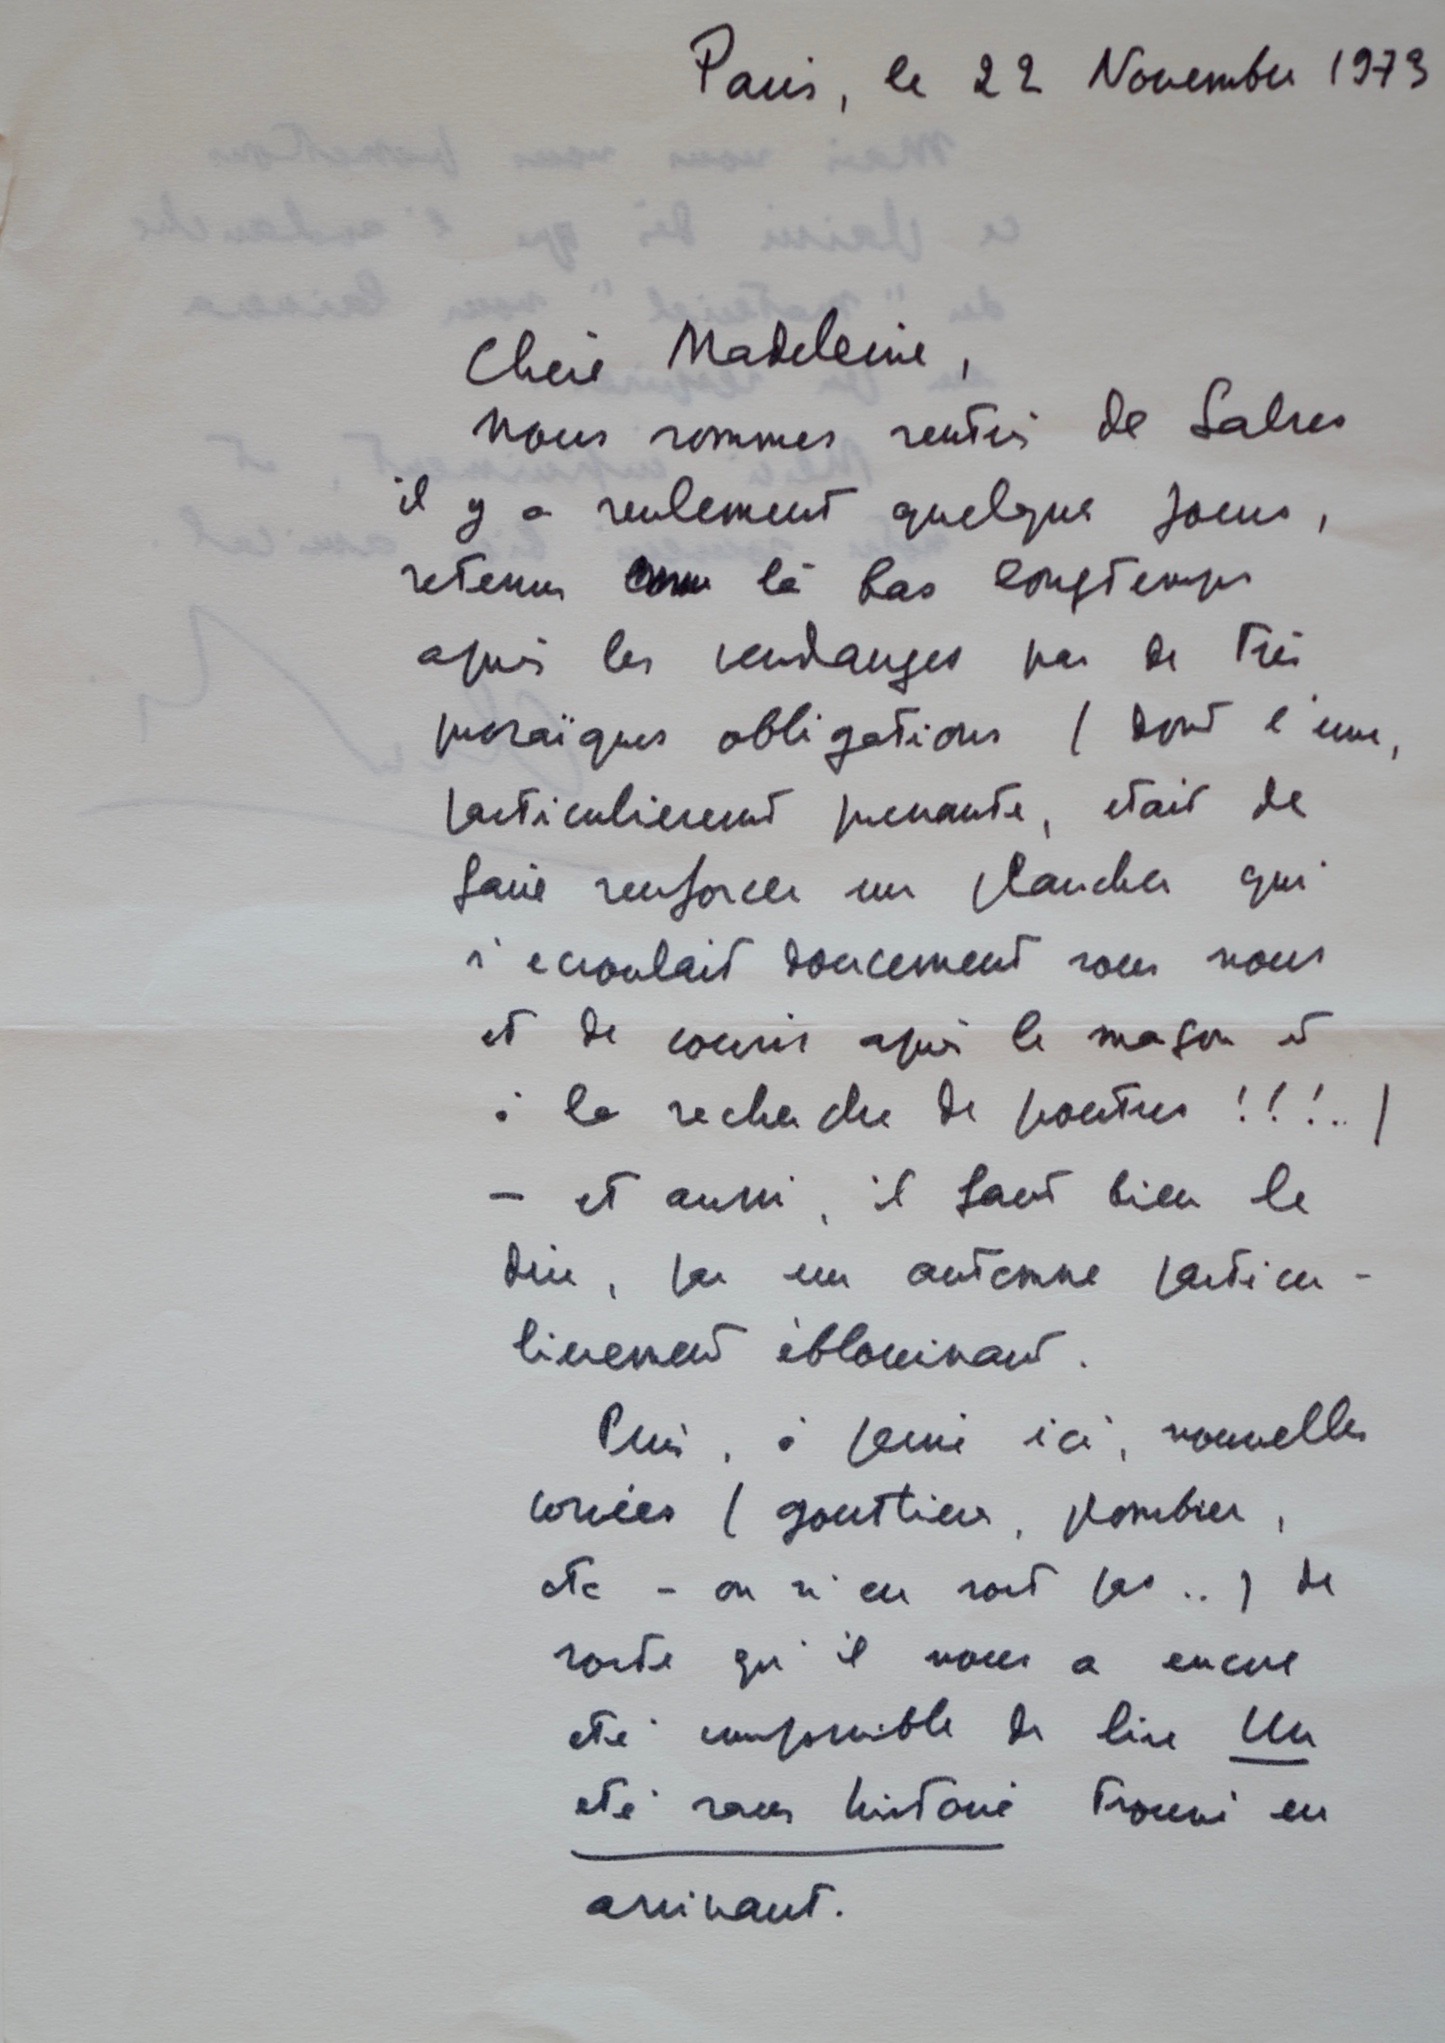 Paris, le 22 Novembre 1973
Chère Madeleine,
nous sommes rentrés de Salses
il y a seulement quelques jours,
retenus là bas longtemps
après les vendanges par de très
prosaïques obligations ( dont l'une,
particulièrement prenante, était de
faire renforcer un plancher qui
s'écroulait doucement sous nous
et de courir après le maçon et
à la recherche de poutres !!!.. )
— et aussi, il faut bien le
dire, par un automne particu-
lièrement éblouissant.
Puis, à peine ici, nouvelles
corvées ( gouttière, plombier,
etc - on n'en sort pas .. ) de
sorte qu'il nous a encore
été impossible de lire Un
été sans histoire trouvé en
arrivant.